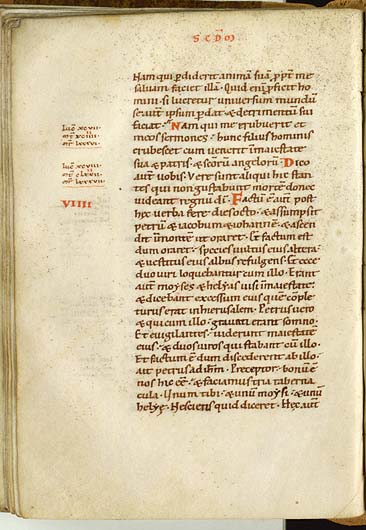 SCDM
Nam qui pdiderit animã suã ppt me
saluam faciet illã. Quid eni pficit homo
mini si lucretur uniuersum mundũ
se aut ipsum pdat & detrimentũ sui
faciat. Nam qui me erubuerit et
meos sermones. hunc filius hominis
erubescet cum uenerit in maiestate
sua & patris. & scõrũ angelorũ. Dico
aut uobis. Vere sunt aliqui hic stan
tes qui non gustabunt mortẽ donec
uideant regnũ di. Factũ ẽ aut post
hęc uerba fere dies octo. & assũpsit
petrũ & iacobum & iohannẽ. & ascen
dit in montẽ ut oraret. Et factum est
dum oraret. species uultus eius altera.
& uestitus eius albus refulgens. Et ecce
duo uiri loquebantur cum illo. Erant
aut moyses & helyas uisi in maiestate.
& dicebant excessum eius quẽ cõple
turus erat in hierusalem. Petrus uero
& qui cum illo. grauati erant somno.
Et euigilantes. uiderunt maiestatẽ
eius. & duos uiros qui stabant cũ illo.
Et factum ẽ dum discederent ab illo.
ait petrus ad ihm. Preceptor. bonũ ẽ
nos hic eẽ. & faciamus tria taberna
cula. Unum tibi. & unũ moysi. & unũ
helyę. Nesciens quid diceret. Hęc aut
VIIII